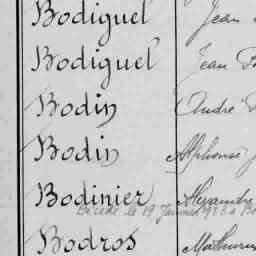 Bodiguel Jean
Bodiguel Jean
Bodin André
Bodin Alphonse
Bodinier Alexandre
Décédé le 19 Janvier
Bodros Mathurin